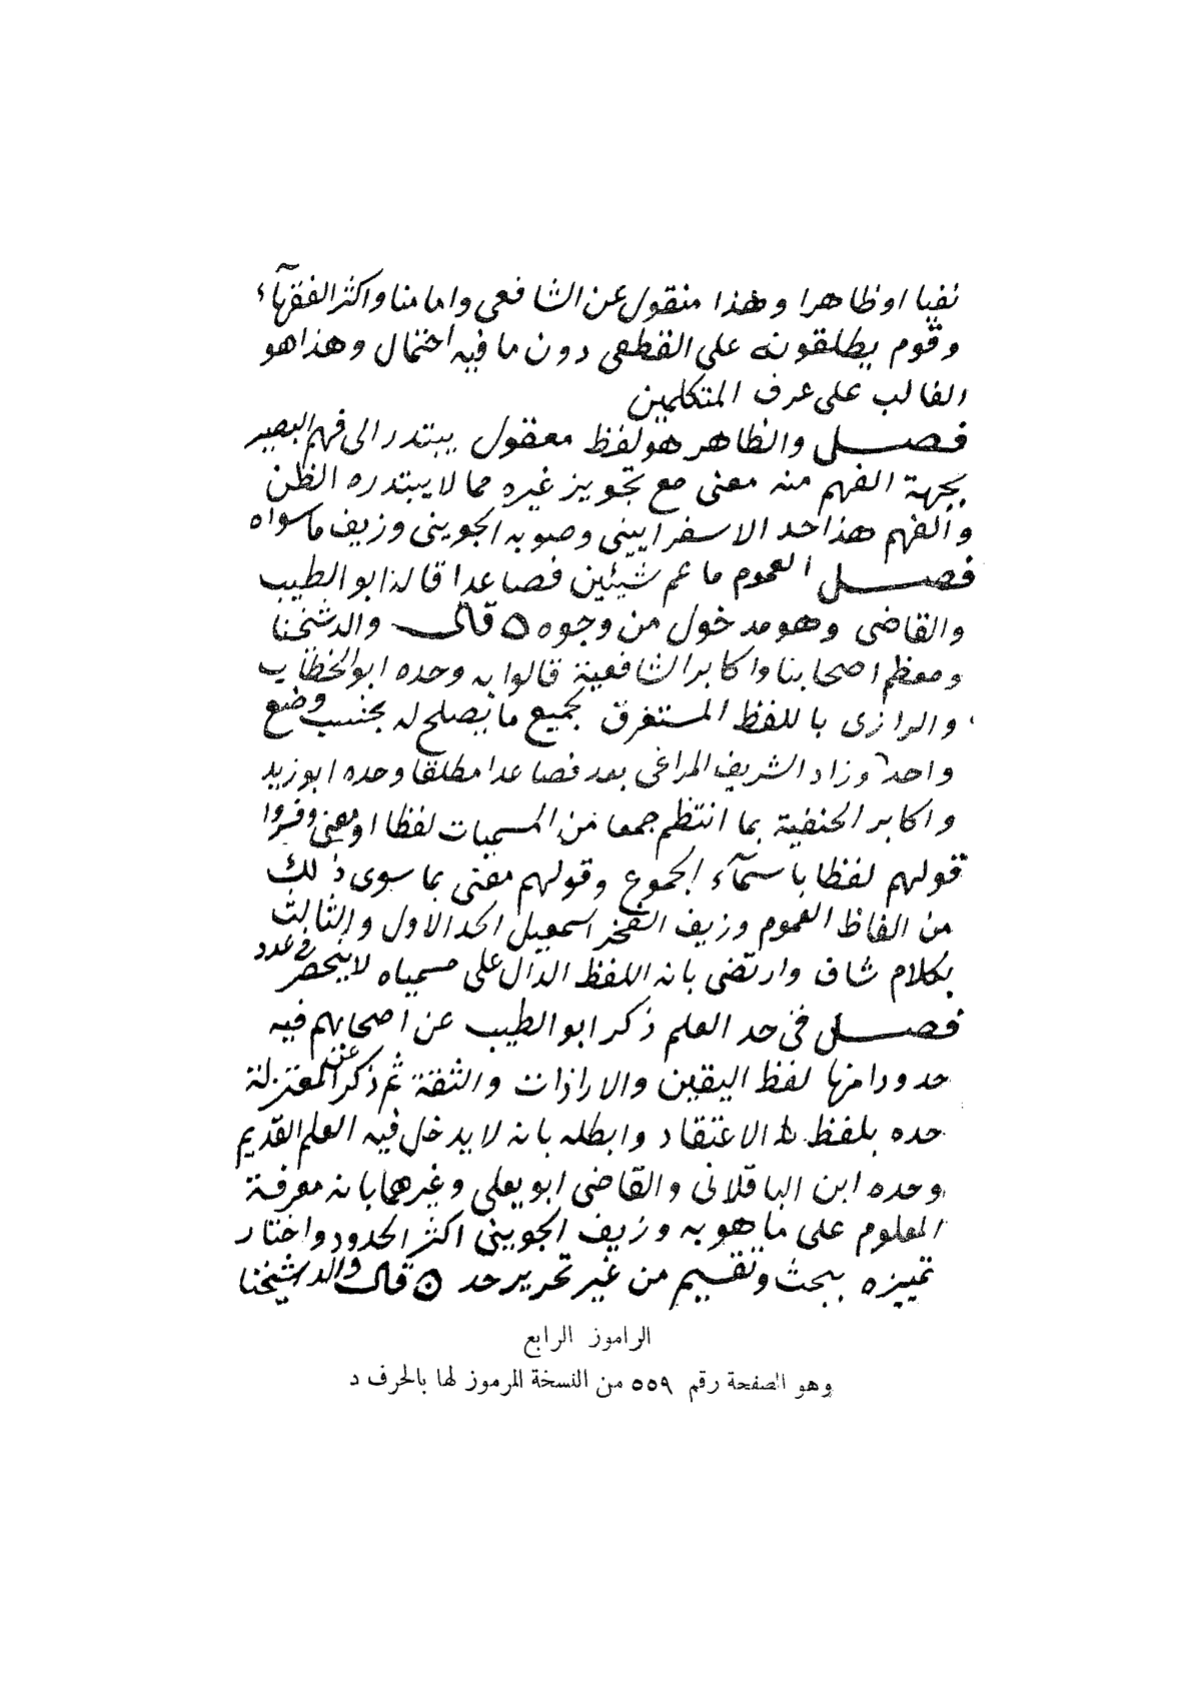 نفيا او ظاهرا وهذا منقول عن الشافعى وامامنا واكثر الفقهآء
وقوم يطلقونه على القطعى دون ما فيه احتمال وهذا هو
الغالب على عرف المتكلمين
فصل والظاهر هو لفظ معقول يبتدر الى فهم البصير
بجهة الفهم منه معنى مع تجويز غيره مما لا يبتدره الظن
والفهم هذا حد الاسفراييني وصوبه الجوينى وزيف ما سواه
فصل العموم ما عم شيئين فصاعدا قاله ابو الطيب
والقاضى وهو مدخول من وجوه ٥ قال والد شيخنا
ومعظم اصحابنا واكابر الشافعية قالوا به وحده ابو الخطاب
والرازى باللفظ المستغرق لجميع ما يصلح له بحسب وضع
واحد وزاد الشريف المراغى بعد فصاعدا مطلقا وحده ابو زيد
واكابر الحنفية بما انتظم جمعا من المسميات لفظا او معنى وفسروا
قولهم لفظا باسمآء الجموع وقولهم معنى بما سوى ذلك
من الفاظ العموم وزيف الفخر اسمعيل الحد الاول والثالث
بكلام شاف وارتضى بانه اللفظ الدال على مسمياه لا ينحصر فى عدد
فصل فى حد العلم ذكر ابو الطيب عن اصحابهم فيه
حدودا منها لفظ اليقين والارادات والثقة ثم ذكر عن المعتزلة
حده بلفظ الاعتقاد وابطله بانه لا يدخل فيه العلم القديم
وحده ابن الباقلانى والقاضى ابو يعلى وغيرهما بانه معرفة
المعلوم على ما هو به وزيف الجوينى اكثر الحدود واختار
تمييزه ببحث وتقسيم من غير تحرير حد ٥ قال والد شيخنا
الراموز الرابع
وهو الصفحة رقم ٥٥٩ من النسخة المرموز لها بالحرف د